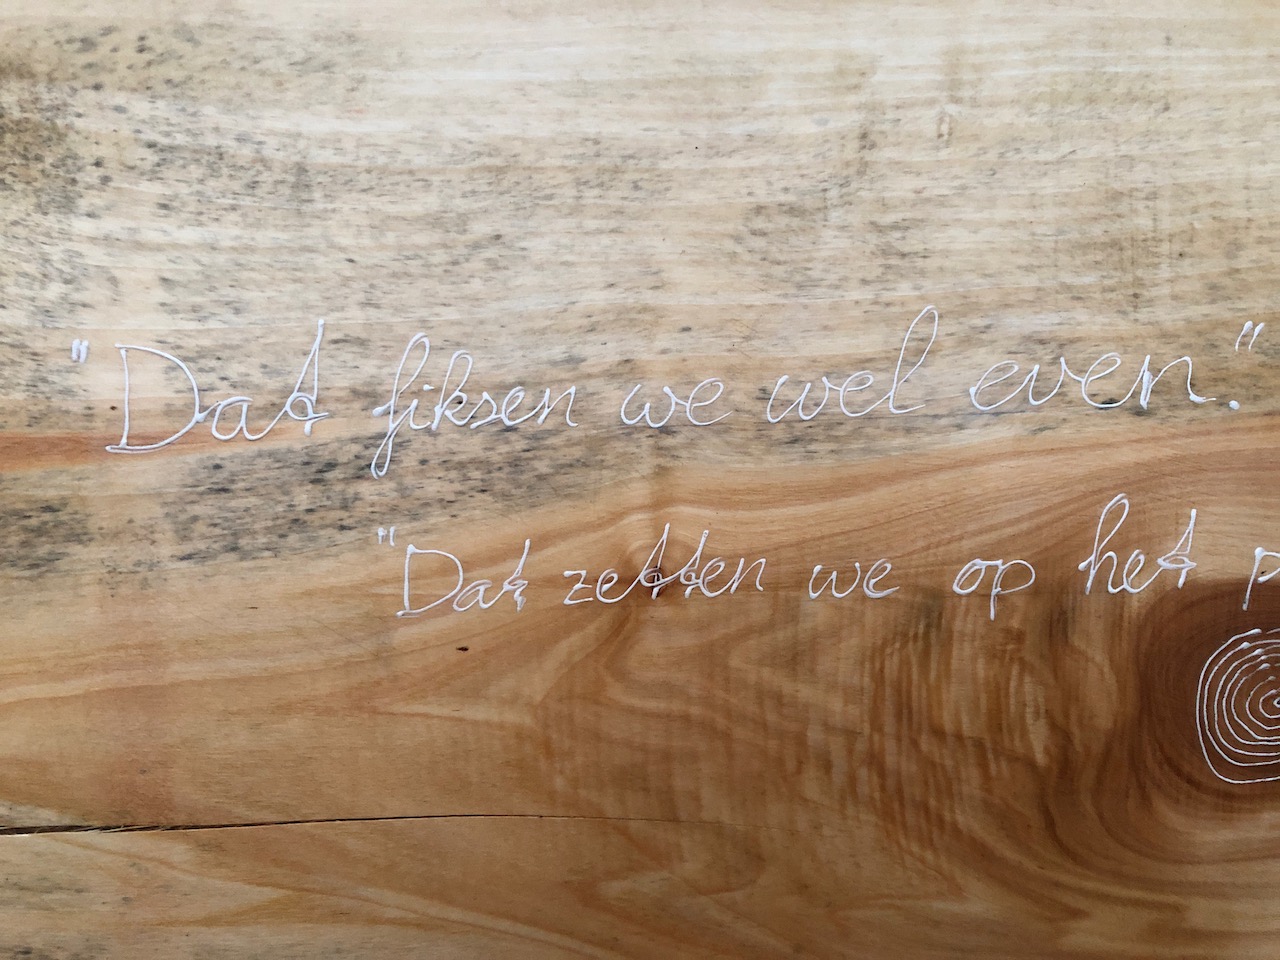 "Dat fiksen we wel even."
"Dat zetten we op het p